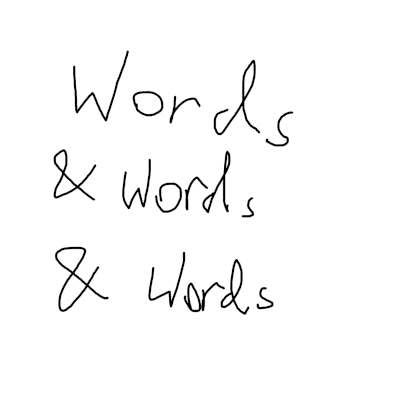 Words
& Words
& Words